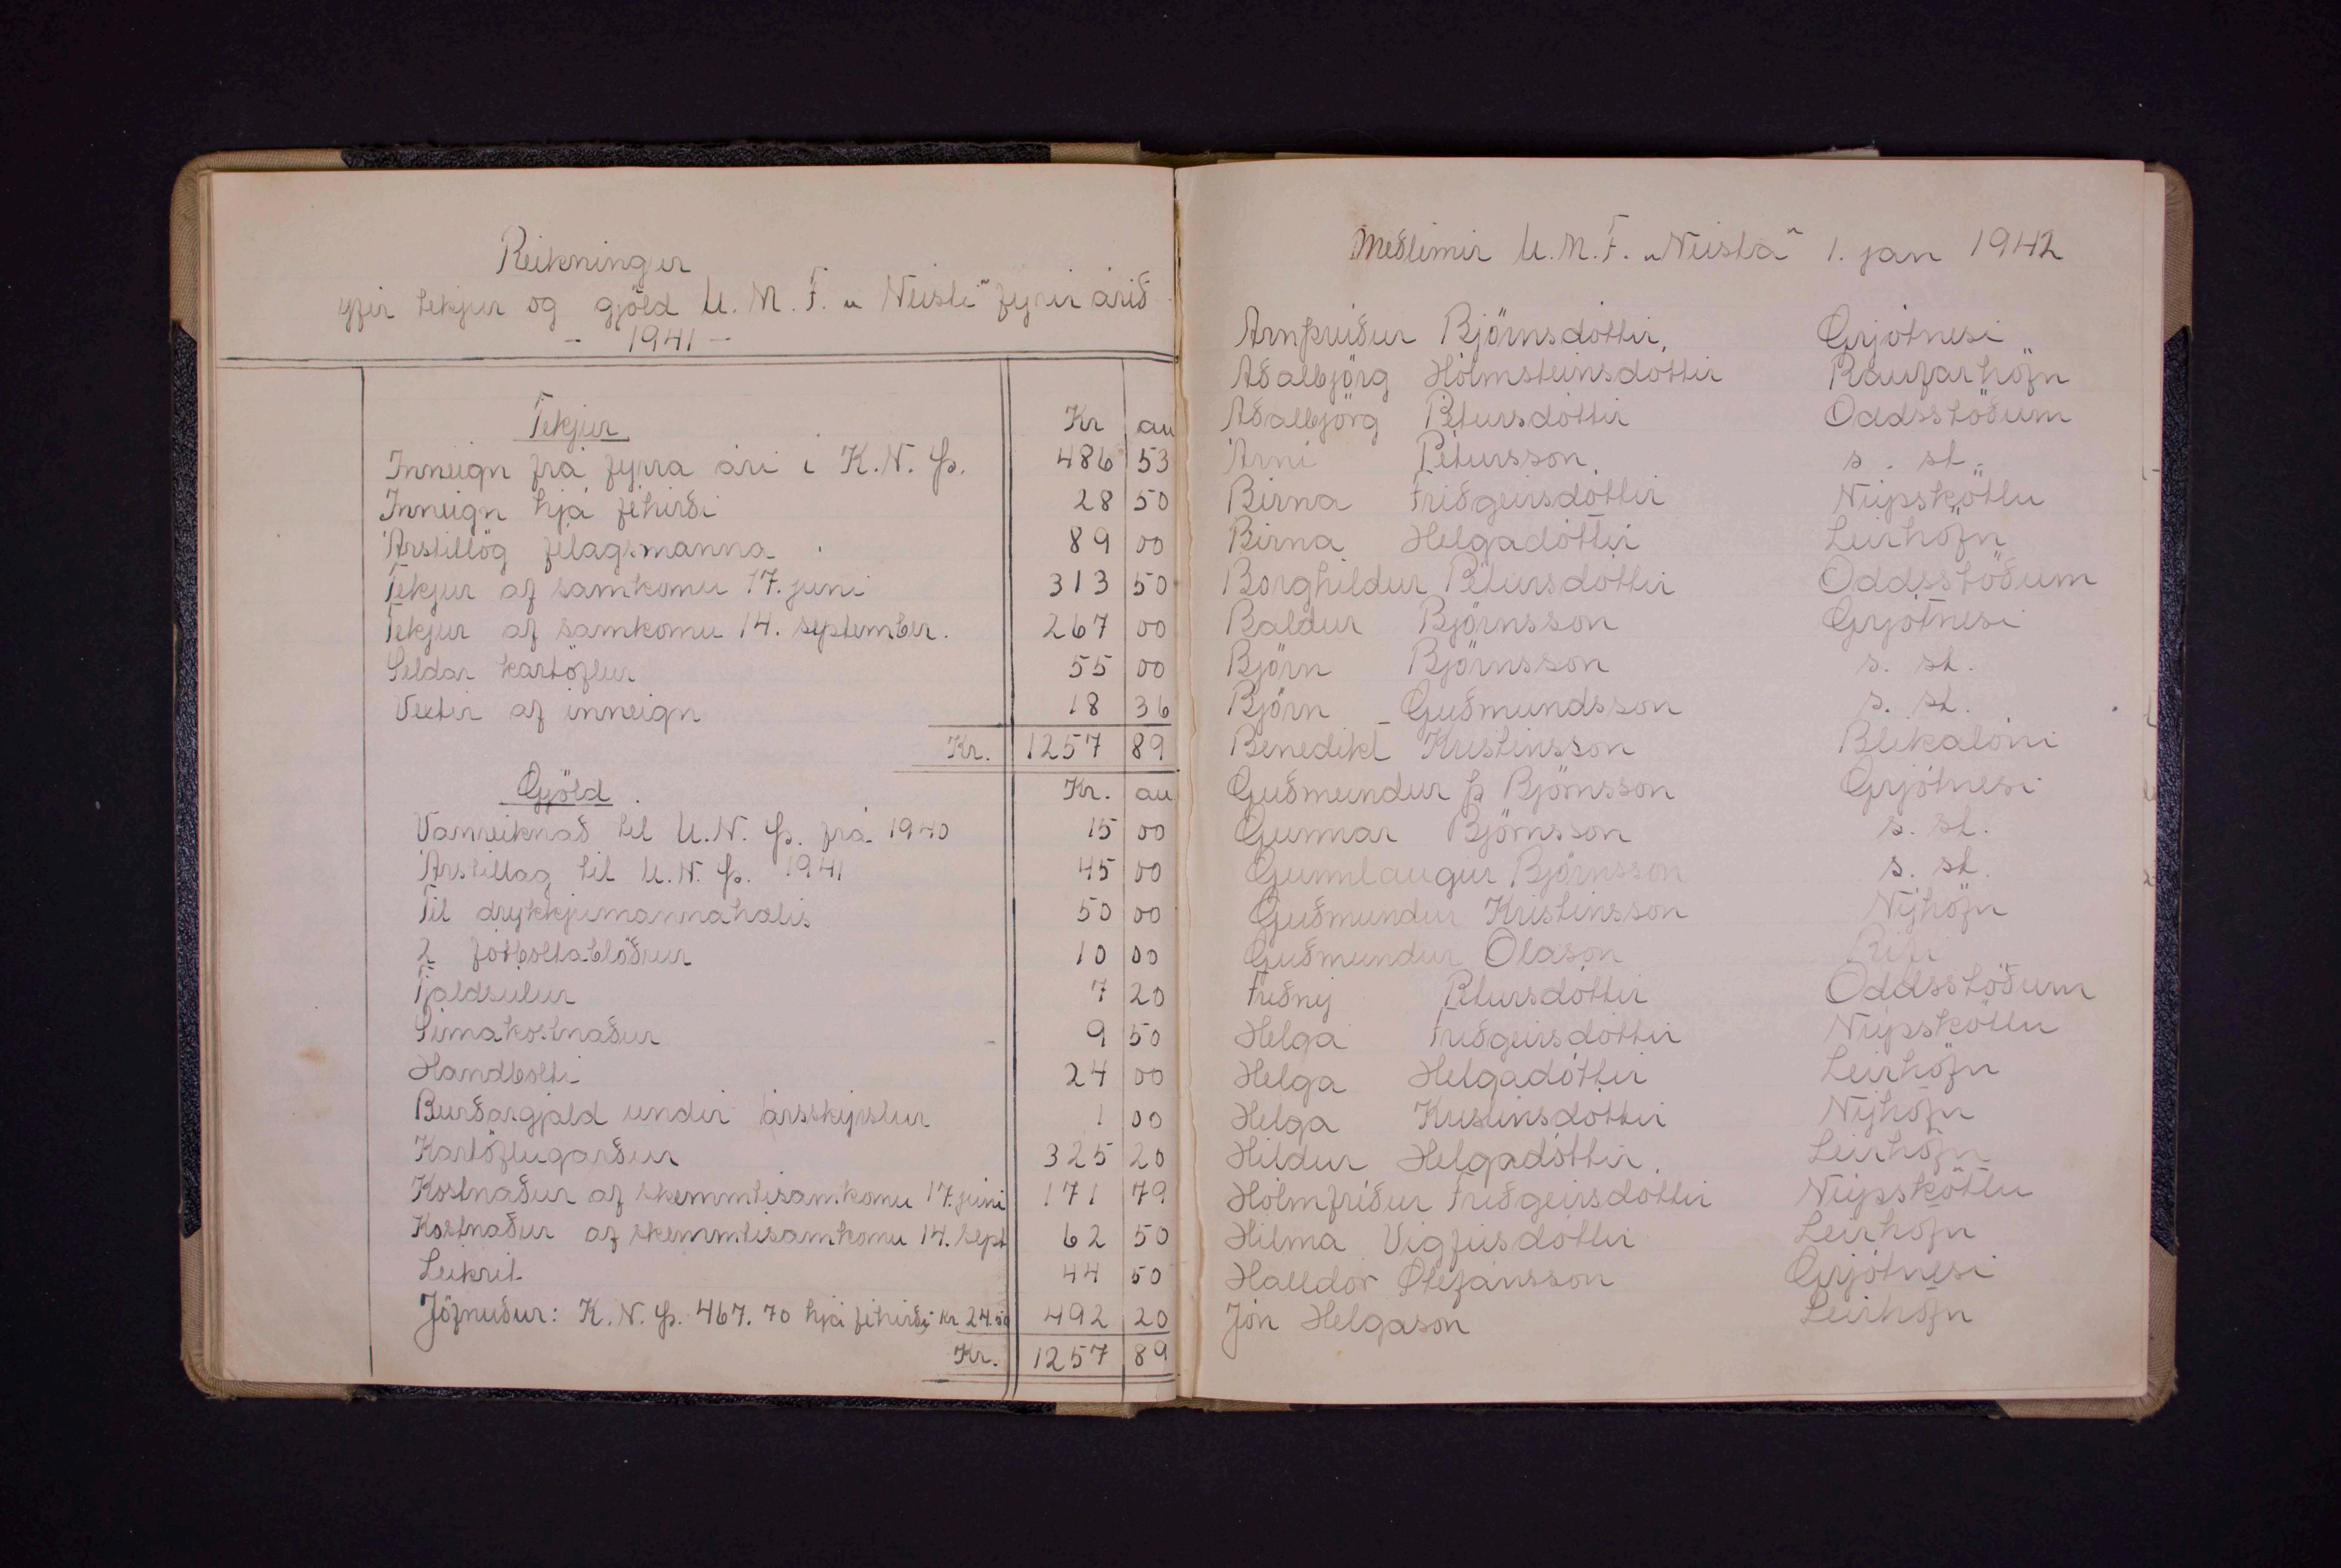 Reikningur
yfir tekjur og gjöld U. M. F. „Neisti“ fyrir árið
- 1941 -
Tekjur Kr au
Inneign frá fyrra ári í K. N. Þ. 486 53
Inneign hjá féhirði 28 50
Árstillög félagsmanna 89 00
Tekjur af samkomu 17. júní 313 50
Tekjur af samkomu 14. september. 267 00
Seldar kartöflur 55 00
Vextir af inneign 18 36
Kr. 1257 89
Gjöld. Kr. au
Vanreiknað til U. N. Þ. frá 1940 15 00
Árstillag til U. N. Þ. 1941 45 00
Til drykkjumannahælis 50 00
2 fótboltablöðrur 10 00
Tjaldsúlur 7 20
Símakostnaður 9 50
Handbolti 24 00
Burðargjald undir ársskýrslur 1 00
Kartöflugarður 325 20
Kostnaður af skemmtisamkomu 17. júní 171 79
Kostnaður af skemmtisamkomu 14. sept 62 50
Leikrit 44 50
Jöfnuður: K. N. Þ. 467.70 hjá féhirði kr 24.50 492 20
Kr. 1257 89
Meðlimir U. M. F. „Neista“ 1. jan 1942
Arnþrúður Björnsdóttir, Grjótnesi
Aðalbjörg Hólmsteinsdóttir Raufarhöfn
Aðalbjörg Pétursdóttir Oddsstöðum
Árni Pétursson. s. st.
Birna Friðgeirsdóttir Núpskötlu
Birna Helgadóttir Leirhöfn
Borghildur Pétursdóttir Oddsstöðum
Baldur Björnsson Grjótnesi
Björn Björnsson s. st.
Björn Guðmundsson s. st.
Benedikt Kristinsson Blikalóni
Guðmundur Þ Björnsson Grjótnesi
Gunnar Björnsson s. st.
Gunnlaugur Björnsson s. st.
Guðmundur Kristinsson Nýhöfn
Guðmundur Ólason Rifi
Friðný Pétursdóttir Oddsstöðum
Helga Friðgeirsdóttir Núpskötlu
Helga Helgadóttir Leirhöfn
Helga Kristinsdóttir Nýhöfn
Hildur Helgadóttir. Leirhöfn
Hólmfríður Friðgeirsdóttir Núpskötlu
Hilma Vigfúsdóttir Leirhöfn
Halldór Stefánsson Grjótnesi
Jón Helgason Leirhöfn